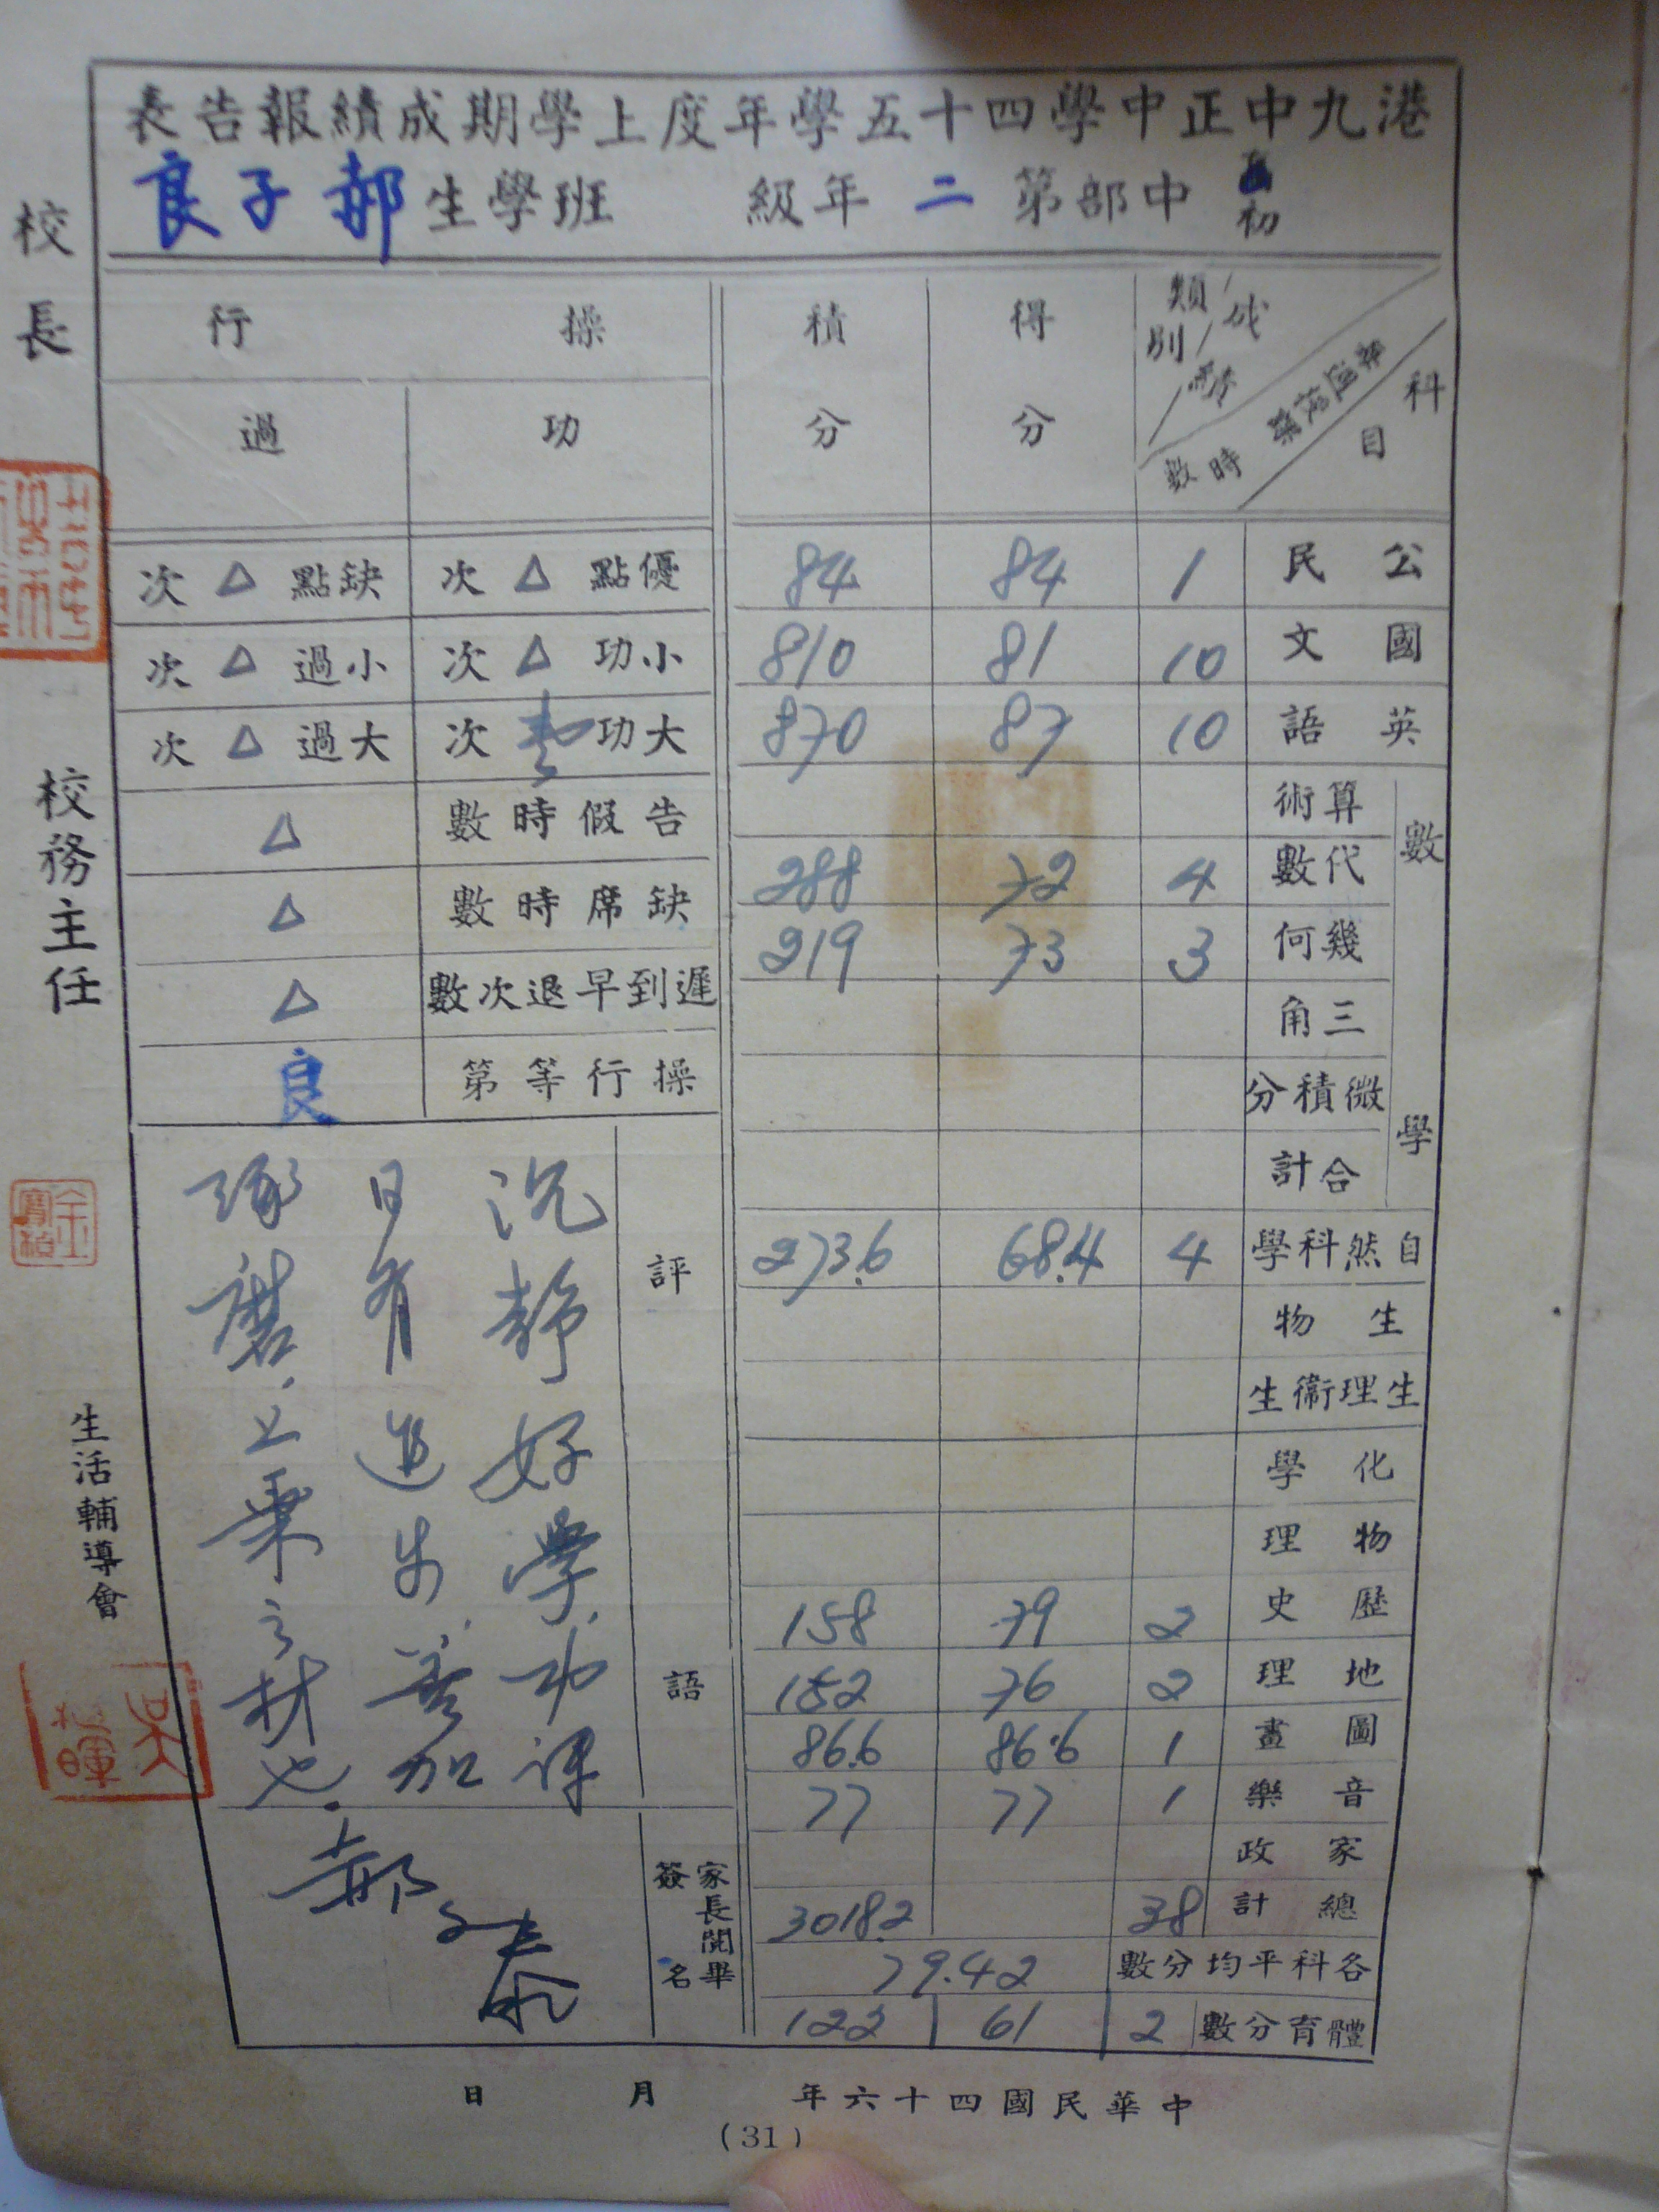 港九中正中學四十五學年度上學期成績報告表
初中部第二年級 班學生郝子良
科目
每週授課時數
成績類別
得分
積分
操行
功
過
公民 1 84 84
國文 10 81 810
英語 10 87 870
數學
算術
代數 4 72 288
幾何 3 73 219
三角
微積分
合計
自然科學 4 68.4 273.6
生物
生理衞生
化學
物理
歷史 2 79 158
地理 2 76 152
圖畫 1 86.6 86.6
音樂 1 77 77
家政
總計 38 3018.2
各科平均分數 79.42
體育分數 2 61 122
優點△次 缺點△次
小功△次 小過△次
大功 次 大過△次
告假時數 △
缺席時數 △
遲到早退次數 △
操行等第 良
評語
沉靜好學，功課
日有進步，善加
琢磨，上乘之材也。
家長閱畢簽名
郝
校長
校務主任
金
生活輔導會
吳 暉
中華民國四十六年 月 日
(31)